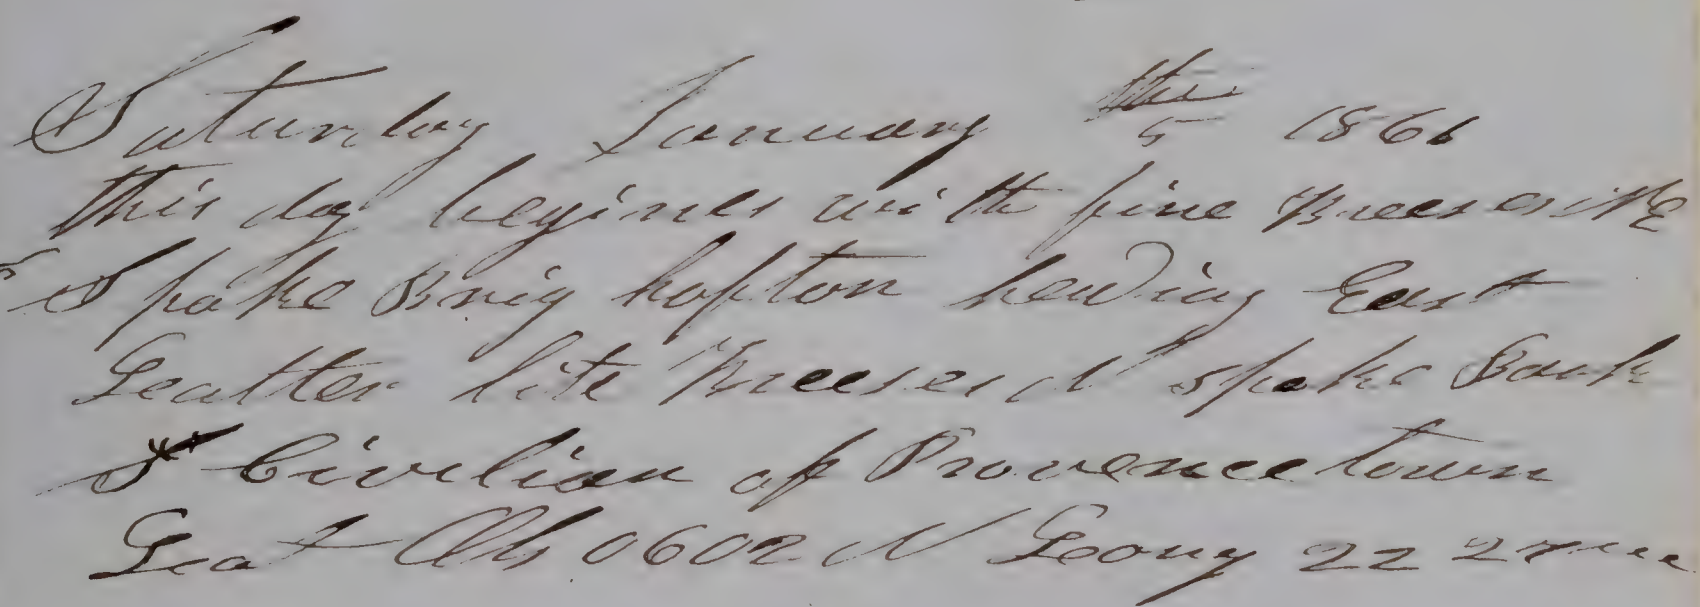 Saturday January the 5 1861
this day begines with fine Breeses NE
Spoke Brig hopton heading East
Leatter lite Breeses spoke Bark
Civilian of Provencetown
Leat Obs 0602 N Long 22 27